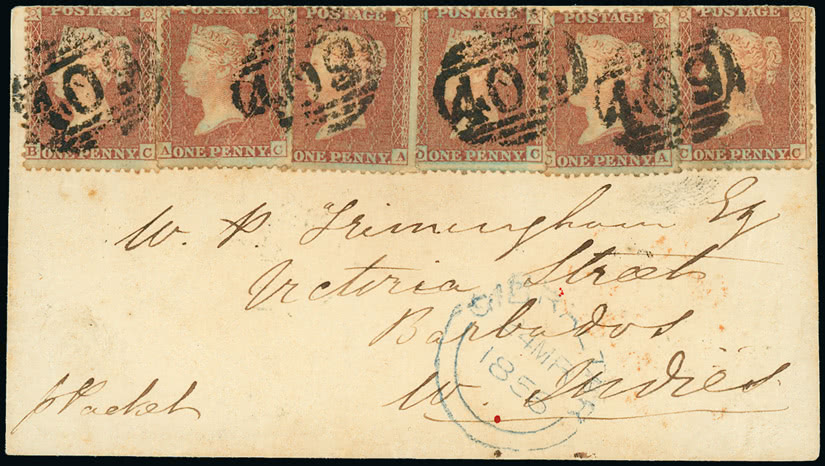 POSTAGE POSTAGE POSTAGE POSTAGE POSTAGE POSTAGE
409 409 409 409
B ONE PENNY. C A ONE PENNY. C ONE PENNY. A ONE PENNY. C ONE PENNY. A ONE PENNY. C
W. P. Trimingham Esq
Victoria Street
Barbados
W. Indies
pPacket
GIBRALTAR
4 MR
1856